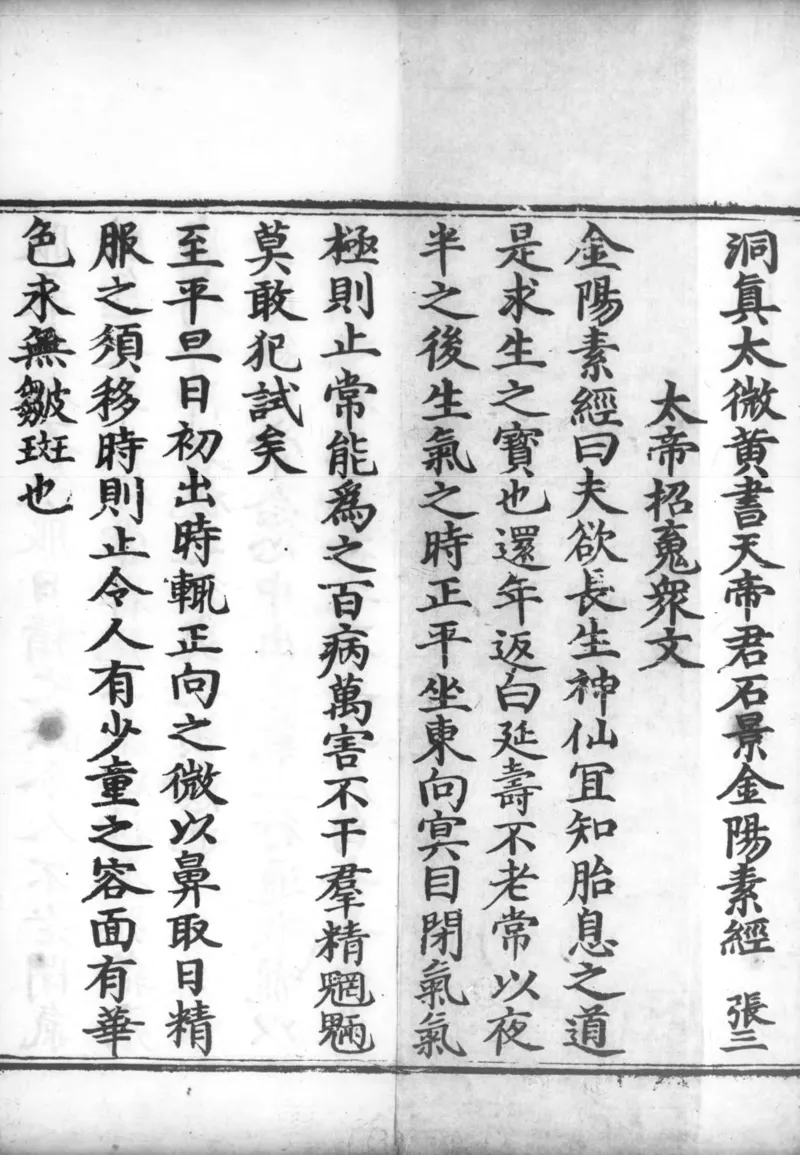 洞真太微黄書天帝君石景金陽素經 張三
太帝招䰟衆文
金陽素經曰夫欲長生神仙冝知胎息之道
是求生之寶也還年返白延壽不老常以夜
半之後生氣之時正平坐東向冥目閉氣氣
極則止常能爲之百病萬害不干羣精魍魎
莫敢犯試矣
至平旦日初出時輒正向之微以鼻取日精
服之須移時則止令人有少童之容面有華
色永無皺斑也